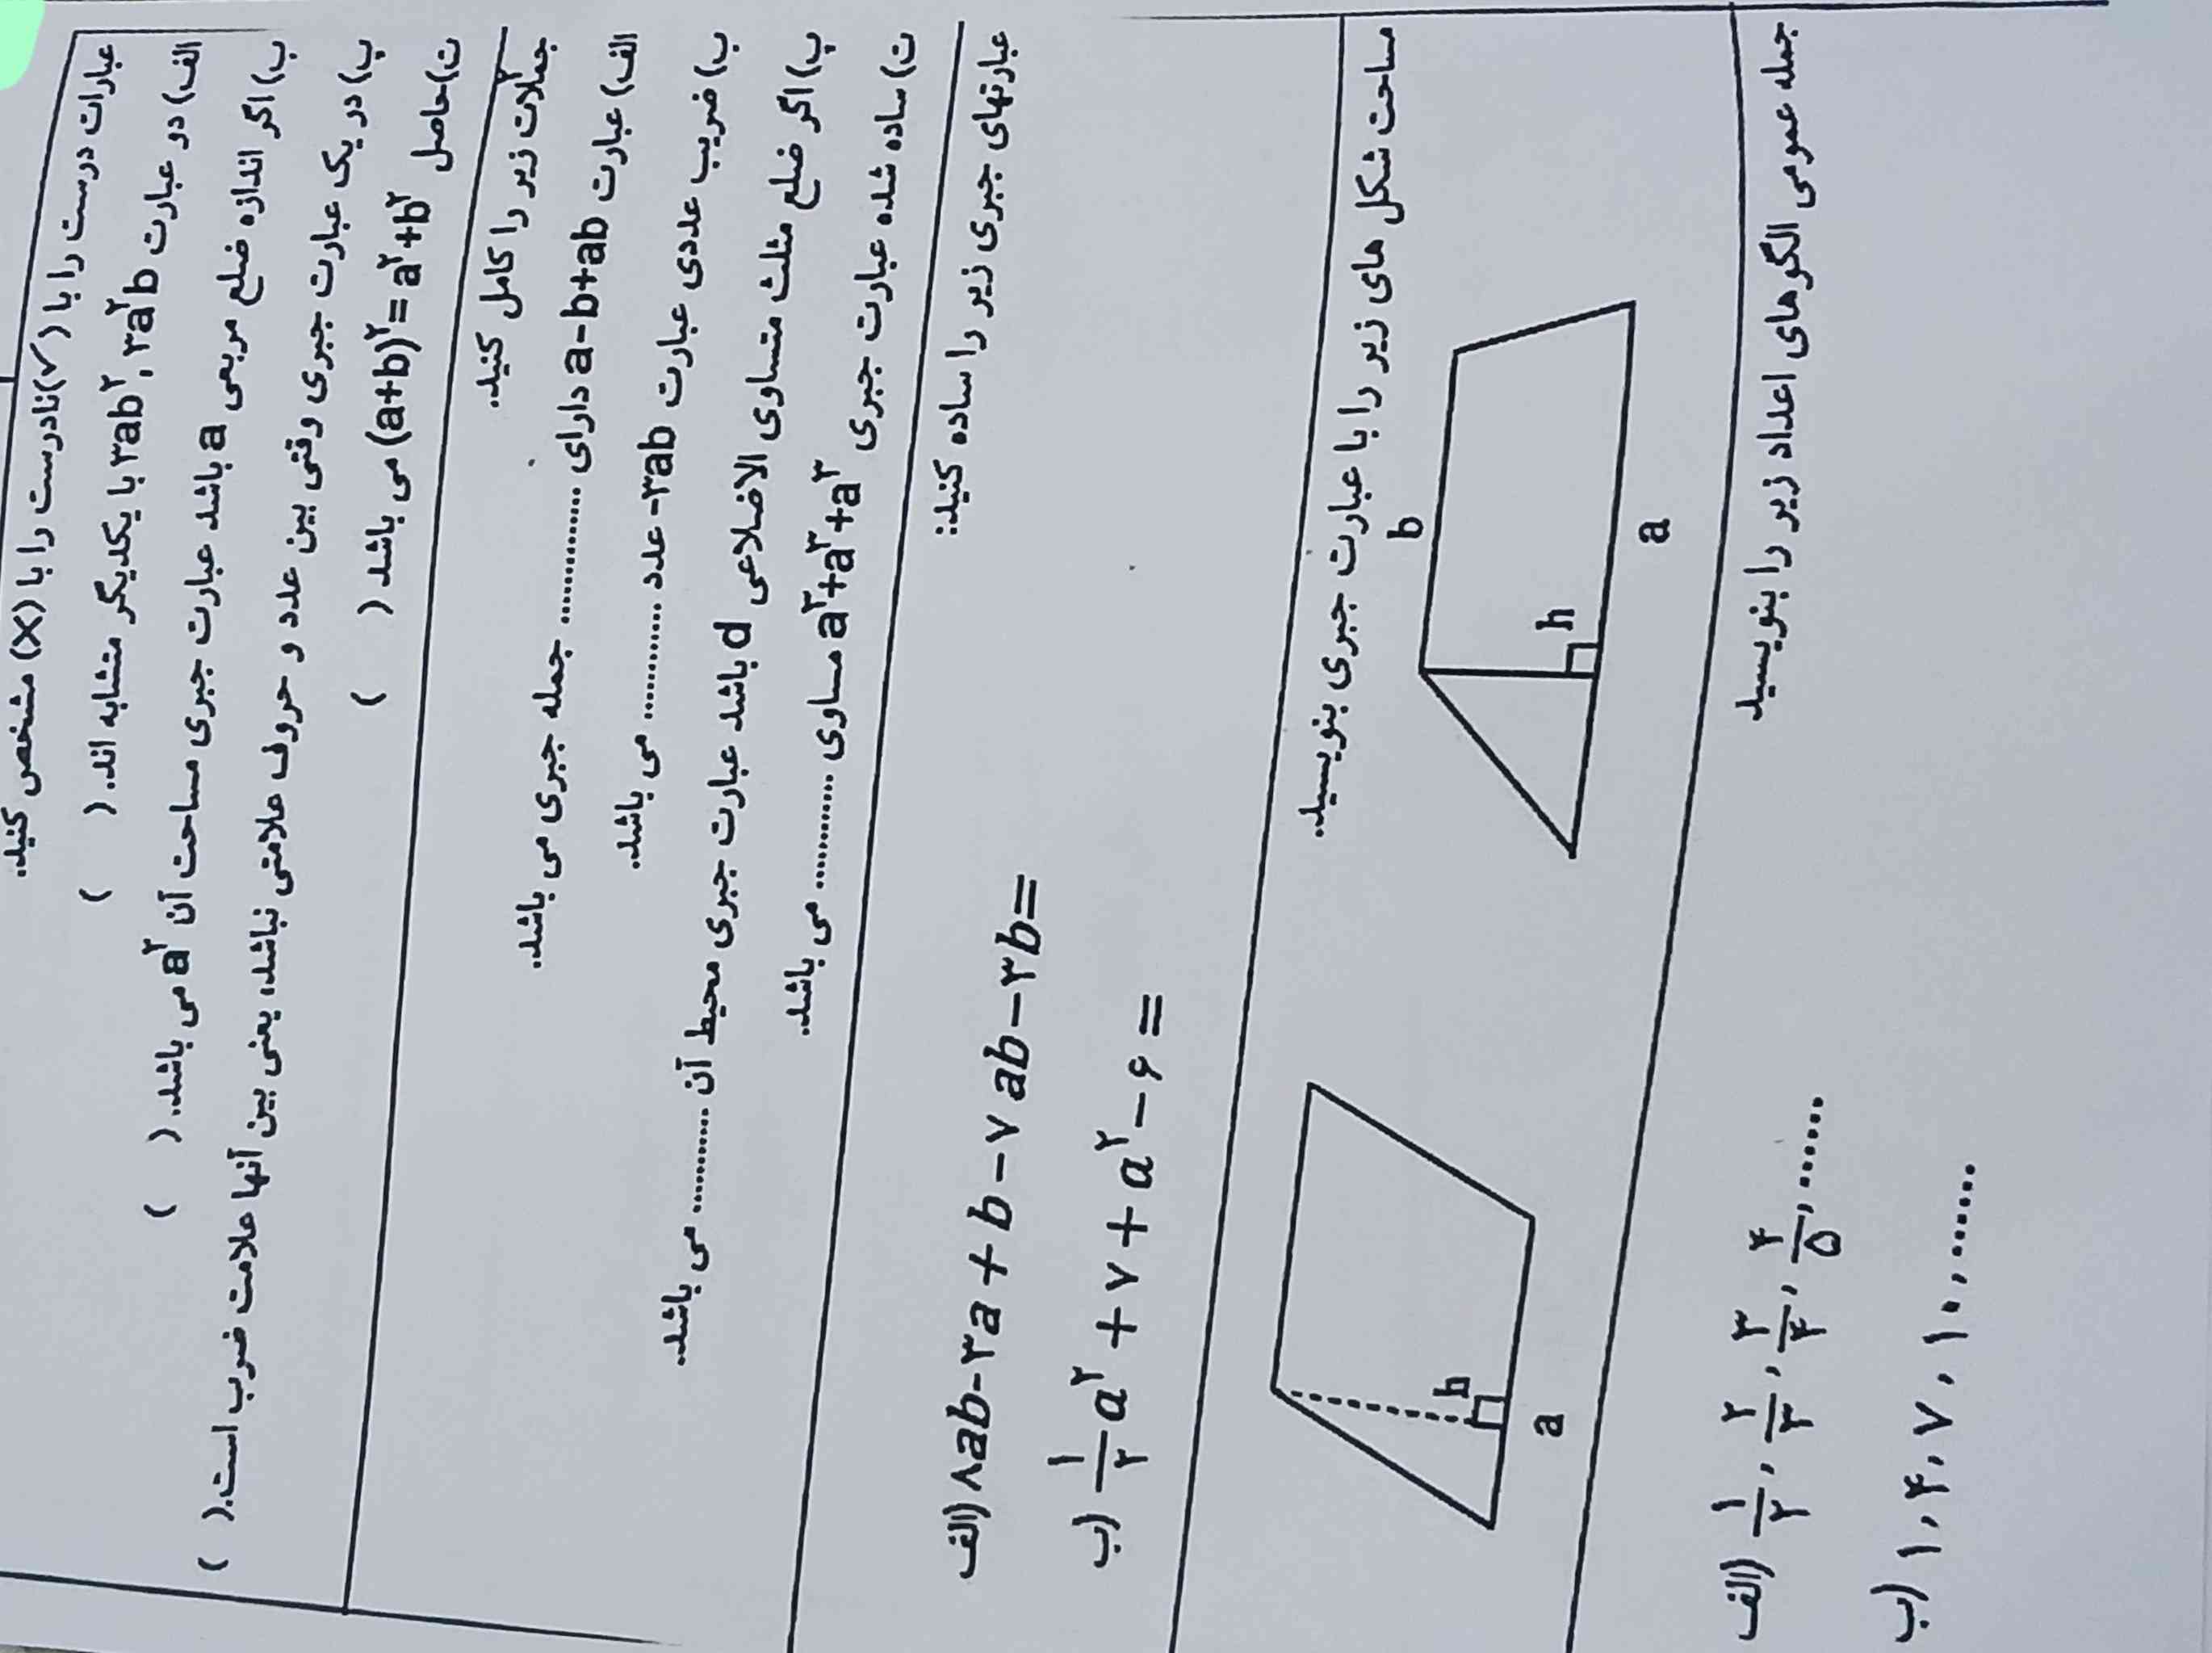 عبارات درست را با (✓)نادرست را با (X) مشخص کنید.
الف) دو عبارت ۳ab۲, ۳a۲b با یکدیگر متشابه اند. ( )
ب) اگر اندازه ضلع مربعی a باشد عبارت جبری مساحت آن a۲ می باشد. ( )
پ) در یک عبارت جبری وقتی بین عدد و حروف علامتی نباشد، یعنی بین آنها علامت ضرب است.( )
ت)حاصل (a+b)۲=a۲+b۲ می باشد ( )
جملات زیر را کامل کنید.
الف) عبارت a-b+ab دارای ............ جمله جبری می باشد.
ب) ضریب عددی عبارت -۳ab عدد ............ می باشد.
پ) اگر ضلع مثلث متساوی الاضلاعی d باشد عبارت جبری محیط آن ............ می باشد.
ت) ساده شده عبارت جبری a۳+a۳+a۳ مساوی ............ می باشد.
عبارتهای جبری زیر را ساده کنید:
الف) ۸ab-۳a+b-۷ab-۳b=
ب) ۱/۲ a۲+۷+a۲-۶=
مساحت شکل های زیر را با عبارت جبری بنویسید.
b
h
a
h
a
جمله عمومی الگوهای اعداد زیر را بنویسید
الف) ۱/۲, ۲/۳, ۳/۴, ۴/۵, ......
ب) ۱, ۴, ۷, ۱۰, ......